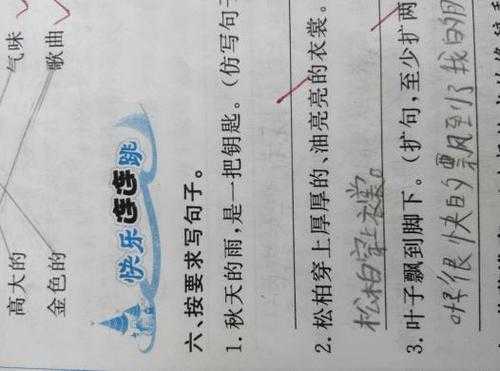 气味
歌曲
高大的
金色的
快乐连连跳
六、按要求写句子。
1. 秋天的雨,是一把钥匙。(仿写句子
2. 松柏穿上厚厚的、油亮亮的衣裳。
松柏穿上衣裳。
3. 叶子飘到脚下。(扩句,至少扩两
叶很快的飘到了我的脚